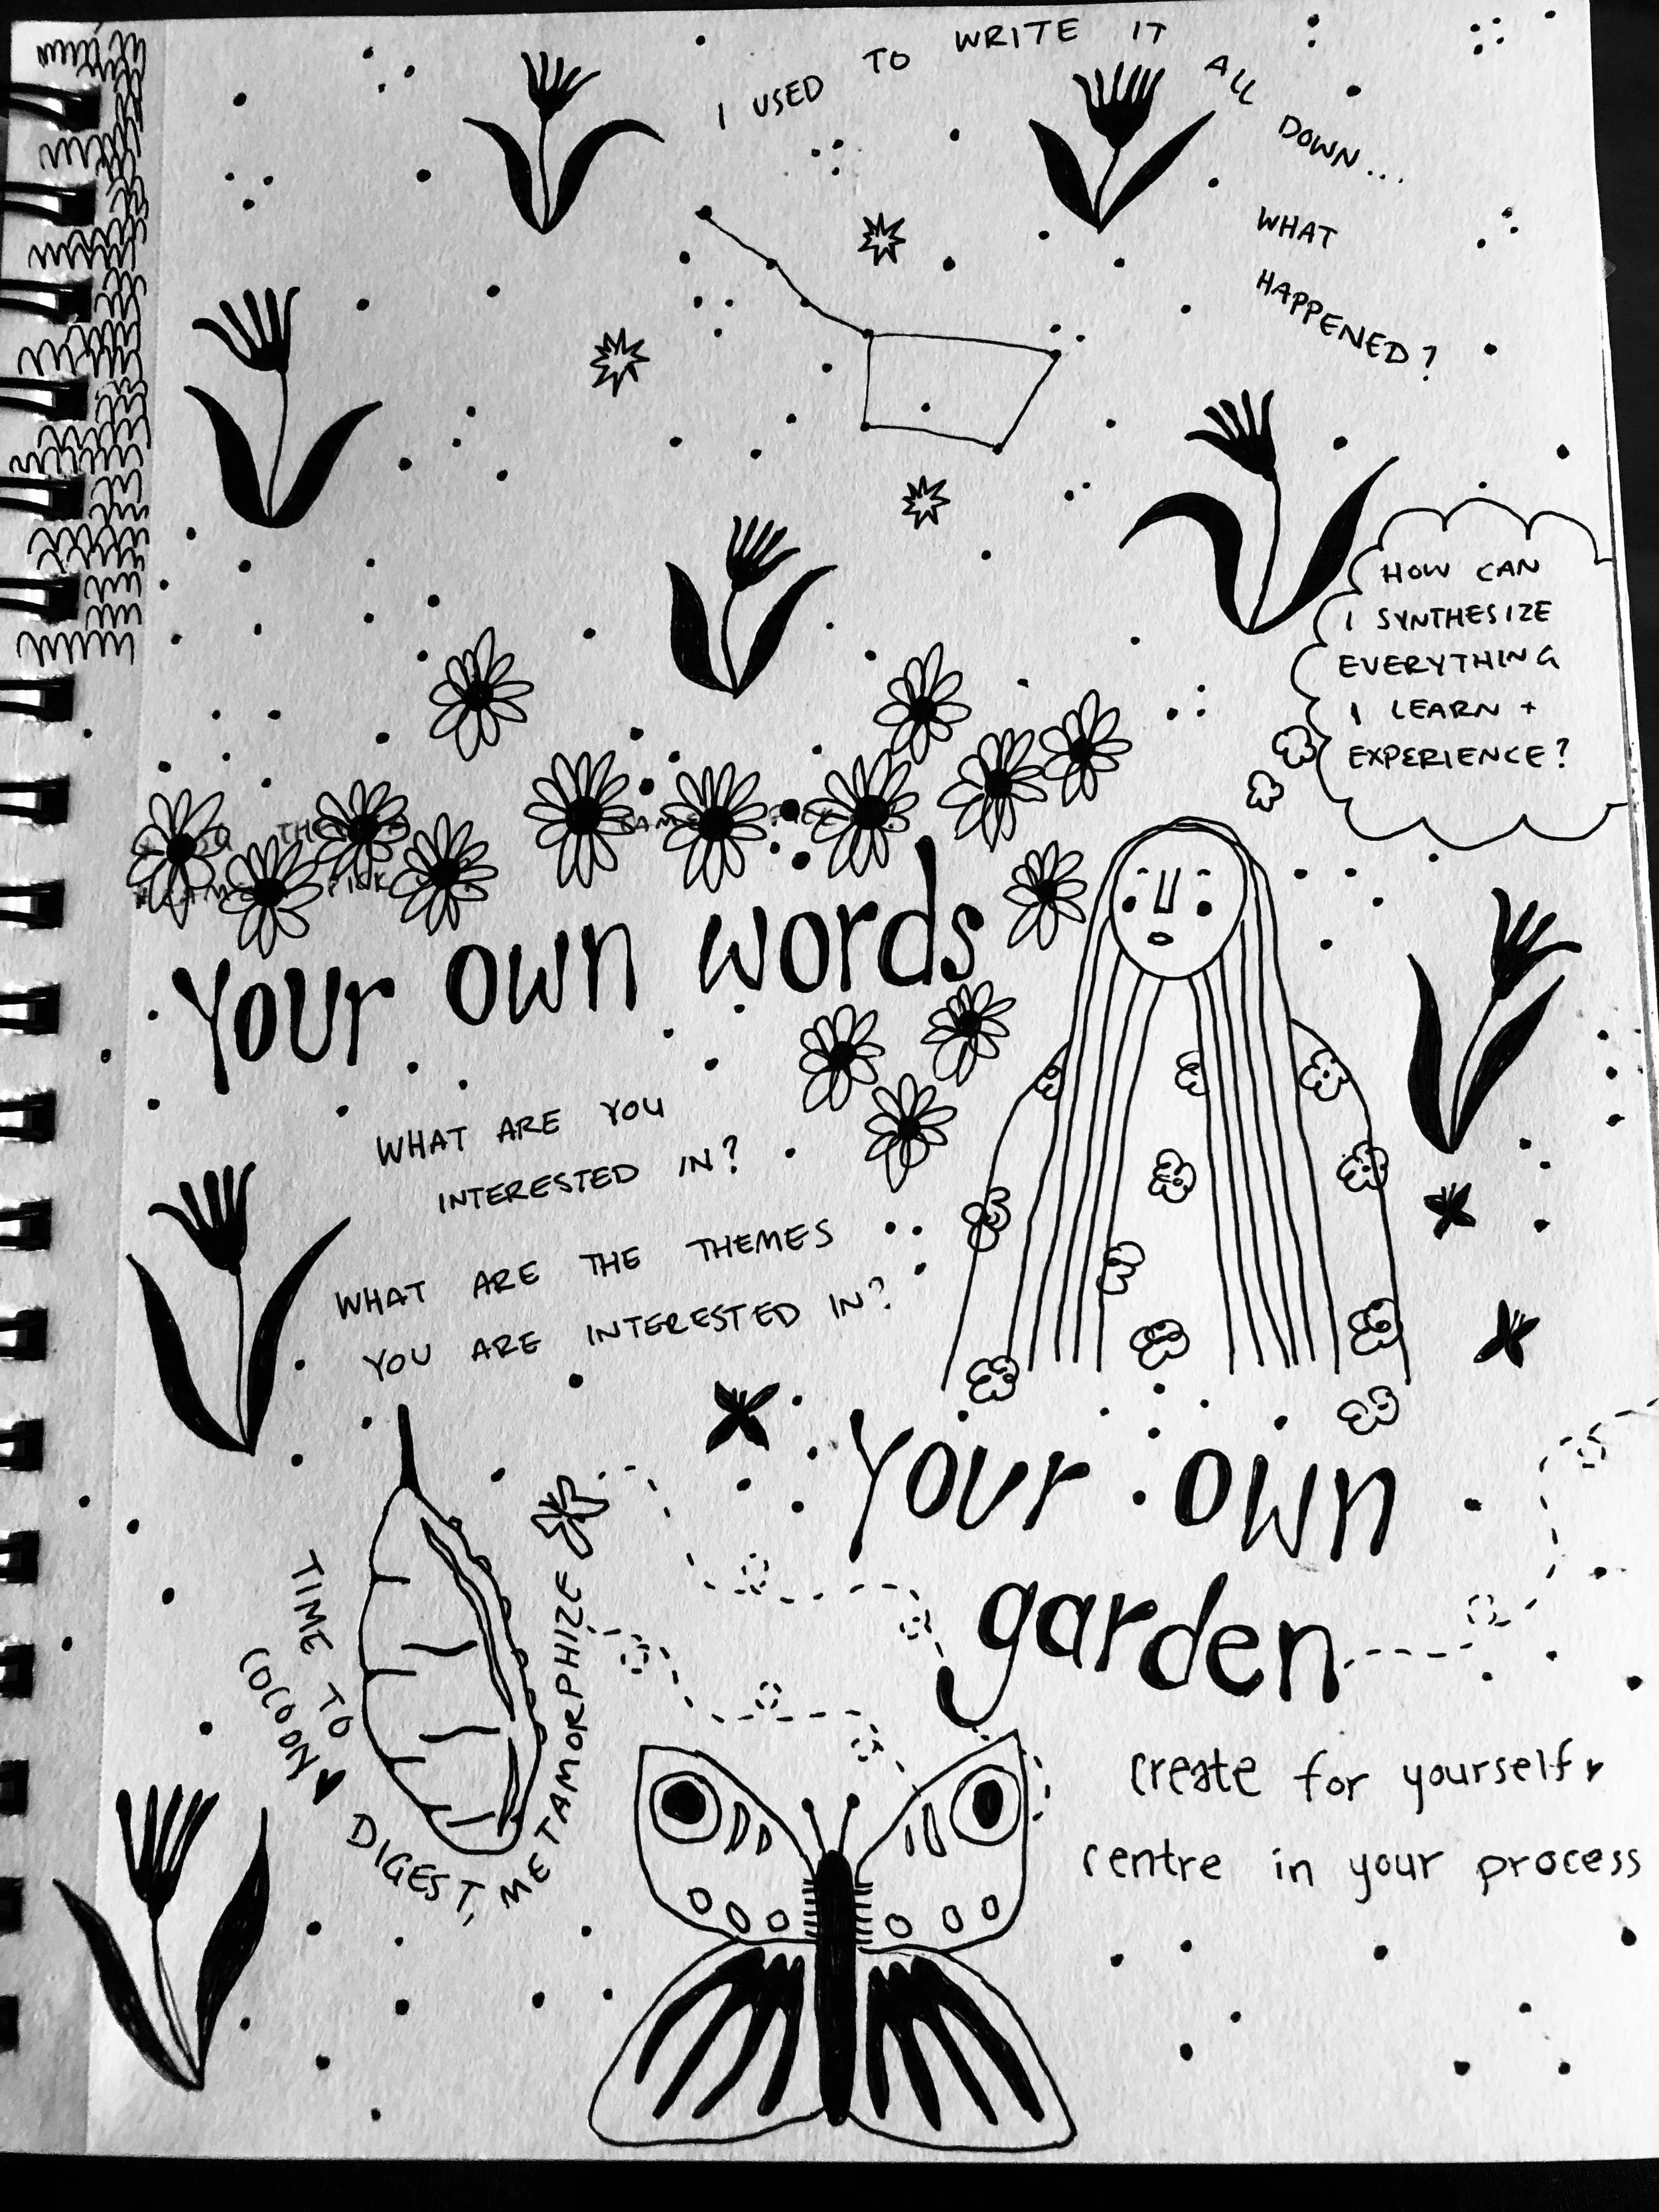 I USED TO WRITE IT ALL DOWN...
WHAT
HAPPENED?
HOW CAN
I SYNTHESIZE
EVERYTHING
I LEARN +
EXPERIENCE?
Your own words
WHAT ARE YOU
INTERESTED IN?
WHAT ARE THE THEMES
YOU ARE INTERESTED IN?
Your own
garden
TIME TO
COCOON ♥
DIGEST, METAMORPHIZE
create for yourself ♥
centre in your process